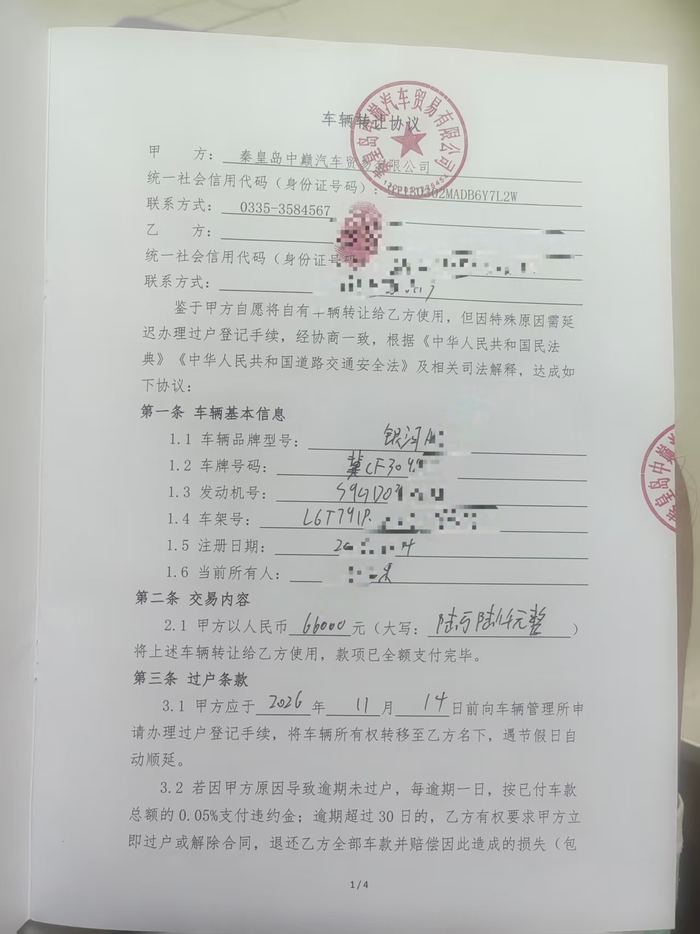 车辆转让协议
甲 方：秦皇岛中巅汽车贸易有限公司
统一社会信用代码（身份证号码）：02MADB6Y7L2W
联系方式：0335-3584567
乙 方：
统一社会信用代码（身份证号码
联系方式：
鉴于甲方自愿将自有车辆转让给乙方使用，但因特殊原因需延
迟办理过户登记手续，经协商一致，根据《中华人民共和国民法
典》《中华人民共和国道路交通安全法》及相关司法解释，达成如
下协议：
第一条 车辆基本信息
1.1 车辆品牌型号：银河
1.2 车牌号码：冀CF30
1.3 发动机号：
1.4 车架号：L6T791
1.5 注册日期：
1.6 当前所有人：
第二条 交易内容
2.1 甲方以人民币 66000 元（大写：陆万陆仟元整）
将上述车辆转让给乙方使用，款项已全额支付完毕。
第三条 过户条款
3.1 甲方应于 2026 年 11 月 14 日前向车辆管理所申
请办理过户登记手续，将车辆所有权转移至乙方名下，遇节假日自
动顺延。
3.2 若因甲方原因导致逾期未过户，每逾期一日，按已付车款
总额的 0.05%支付违约金；逾期超过 30 日的，乙方有权要求甲方立
即过户或解除合同，退还乙方全部车款并赔偿因此造成的损失（包
1/4
秦皇岛中巅汽车贸易有限公司
皇岛中巅汽